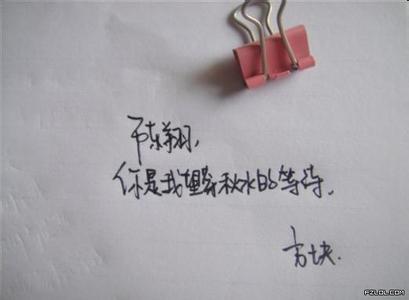 陈翔,
你是我望穿秋水的等待.
方块.
PZLDL.COM